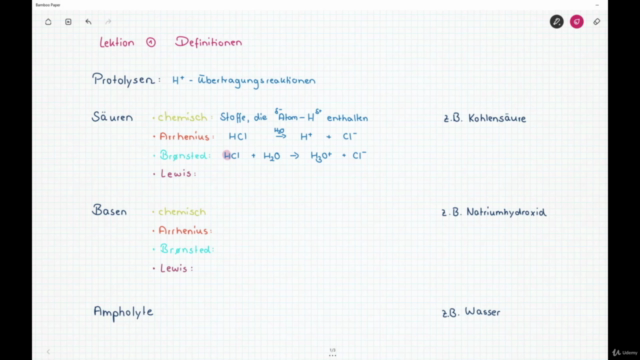 Bamboo Paper
Lektion ① Definitionen
Protolysen: H⁺ - Übertragungsreaktionen
Säuren • chemisch: Stoffe, die δ⁻Atom-Hδ⁺ enthalten z.B. Kohlensäure
• Arrhenius: HCl H₂O→ H⁺ + Cl⁻
• Brønsted: HCl + H₂O → H₃O⁺ + Cl⁻
• Lewis:
Basen • chemisch z.B. Natriumhydroxid
• Arrhenius:
• Brønsted:
• Lewis:
Ampholyte z.B. Wasser
1/6
Udemy